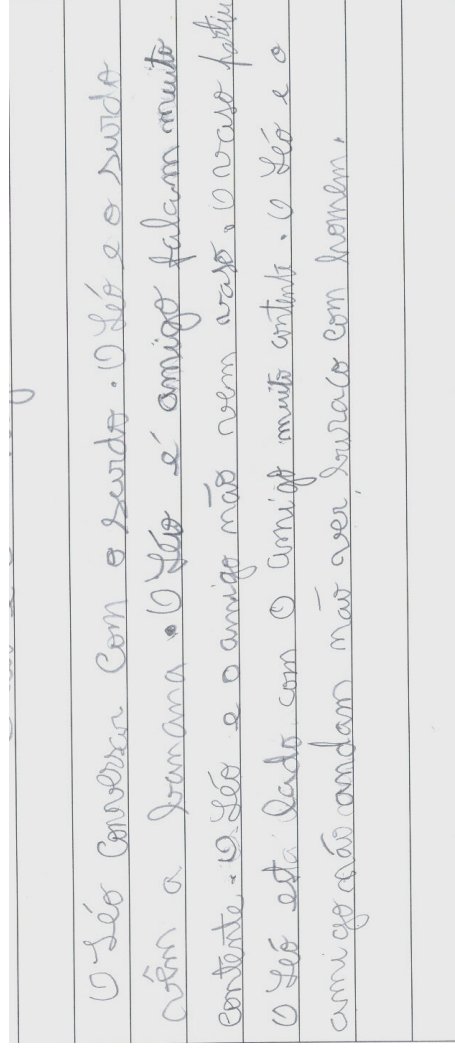 O Léo conversar com o surdo. O Léo e o surdo
vêm a banana. O Léo é amigo falam muito
contente. O Léo e o amigo não vem vaso. O vaso partiu
O Léo está lado com o amigo muito contente. O Léo e o
amigo não andam não ver buraco com homem.